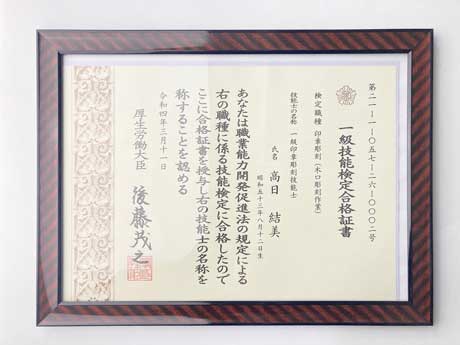 第二一-一-〇五七-二六-〇〇〇二号
一級技能検定合格証書
検定職種 印章彫刻(木口彫刻作業)
技能士の名称 一級印章彫刻技能士
氏名 高日 結美
昭和五十三年八月十二日生
あなたは職業能力開発促進法の規定による
右の職種に係る技能検定に合格したので
ここに合格証書を授与し右の技能士の名称を
称することを認める
令和四年三月十一日
厚生労働大臣 後藤茂之